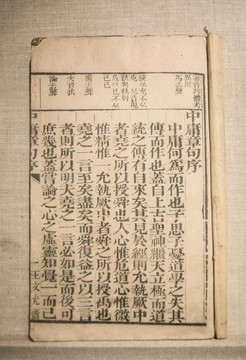 爲去聲
復去聲
夫音扶
論去聲
中庸章句序
中庸何爲而作也子思子憂道學之失其
傳而作也蓋自上古聖神繼天立極而道
統之傳有自來矣其見於經則允執厥中
者堯之所以授舜也人心惟危道心惟微
惟精惟一允執厥中者舜之所以授禹也
堯之一言至矣盡矣而舜復益之以三言
者則所以明夫堯之一言必如是而後可
庶幾也蓋嘗論之心之虛靈知覺一而已
中庸章句序